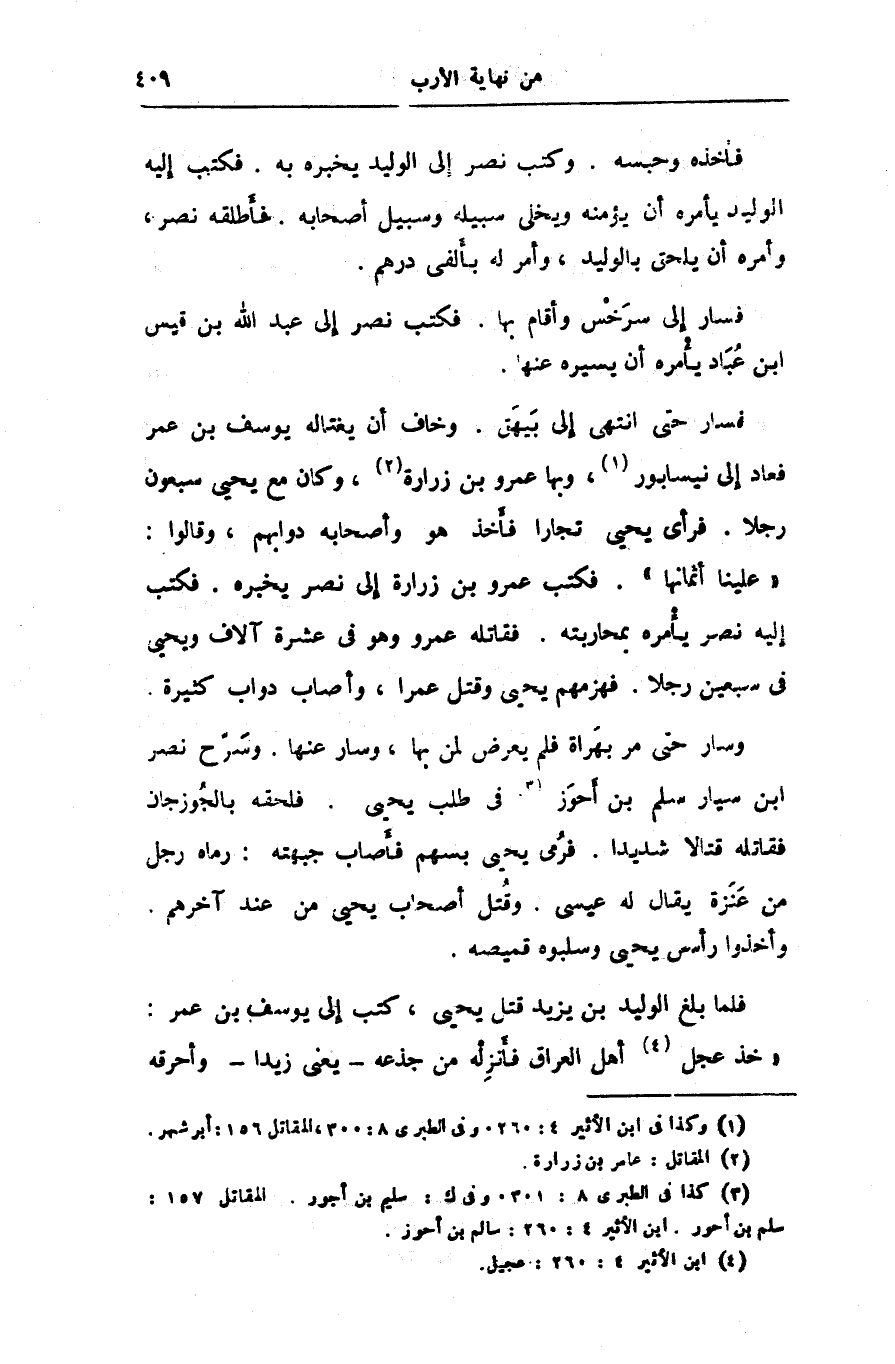 من نهاية الأرب ٤٠٩
فأخذه وحبسه . وكتب نصر إلى الوليد يخبره به . فكتب إليه
الوليد يأمره أن يؤمنه ويخلى سبيله وسبيل أصحابه . فأطلقه نصر ،
وأمره أن يلحق بالوليد ، وأمر له بألفى درهم .
فسار إلى سرَخْس وأقام بها . فكتب نصر إلى عبد الله بن قيس
ابن عُبَاد يأْمره أن يسيره عنها .
فسار حتى انتهى إلى بَيهَق . وخاف أن يغتاله يوسف بن عمر
فعاد إلى نيسابور (١) ، وبها عمرو بن زرارة (٢) ، وكان مع يحيى سبعون
رجلا . فرأى يحيى تجارا فأخذ هو وأصحابه دوابهم ، وقالوا :
« علينا أثمانها » . فكتب عمرو بن زرارة إلى نصر يخبره . فكتب
إليه نصر يأْمره بمحاربته . فقاتله عمرو وهو فى عشرة آلاف ويحيى
فى سبعين رجلا . فهزمهم يحيى وقتل عمرا ، وأصاب دواب كثيرة .
وسار حتى مر بهَراة فلم يعرض لمن بها ، وسار عنها . وسَرّح نصر
ابن سيار سلم بن أَحوَز (٣) فى طلب يحيى . فلحقه بالجُوزجان
فقاتله قتالا شديدا . فرُمى يحيى بسهم فأَصاب جبهته : رماه رجل
من عَنَزة يقال له عيسى . وقُتل أصحاب يحيى من عند آخرهم .
وأخذوا رأس يحيى وسلبوه قميصه .
فلما بلغ الوليد بن يزيد قتل يحيى ، كتب إلى يوسف بن عمر :
« خذ عجل (٤) أهل العراق فأَنزِلْه من جذعه – يعنى زيدا – وأحرقه
(١) وكذا فى ابن الأثير ٤ : ٢٦٠ . وفى الطبرى ٨ : ٣٠٠ ، المقاتل ١٥٦ : أبرشهر .
(٢) المقاتل : عامر بن زرارة .
(٣) كذا فى الطبرى ٨ : ٣٠١ . وفى ك : سليم بن أجور . المقاتل ١٥٧ :
سلم بن أحور . ابن الأثير ٤ : ٢٦٠ : سالم بن أحوز .
(٤) ابن الأثير ٤ : ٢٦٠ : عجيل .